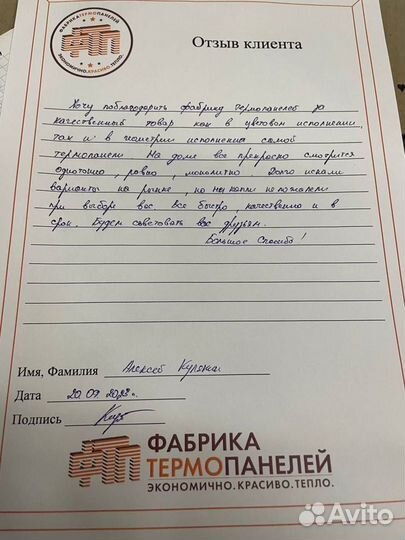 ФАБРИКА ТЕРМОПАНЕЛЕЙ
ФТП
ЭКОНОМИЧНО.КРАСИВО.ТЕПЛО.
Отзыв клиента
Хочу поблагодарить фабрику термопанелей за
качественный товар как в цветовом исполнении,
так и в геометрии исполнения самой
термопанели. На доме все прекрасно смотрится
однотонно, ровно, монолитно. Долго искали
варианты на рынке, но ни капли не пожалели
при выборе вас. Все быстро, качественно и в
срок. Будем советовать вас друзьям.
Большое спасибо!
Имя, Фамилия Алексей
Дата 20.07.2023 г.
Подпись
ФТП
ФАБРИКА
ТЕРМОПАНЕЛЕЙ
ЭКОНОМИЧНО.КРАСИВО.ТЕПЛО.
Avito